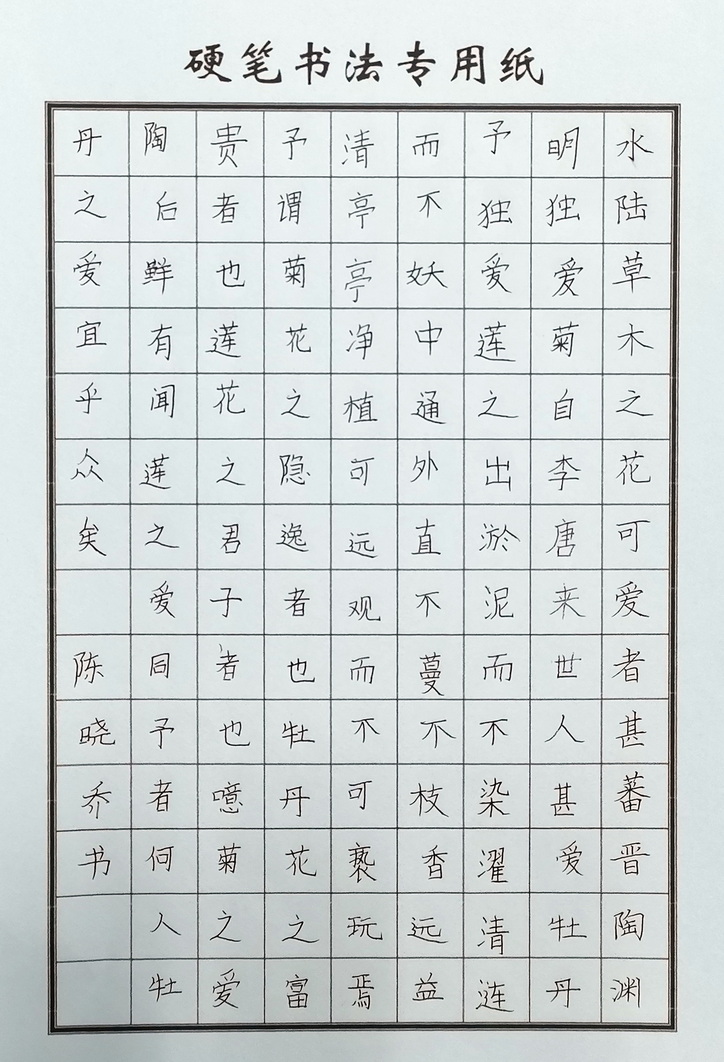 硬笔书法专用纸
水陆草木之花可爱者甚蕃晋陶渊
明独爱菊自李唐来世人甚爱牡丹
予独爱莲之出淤泥而不染濯清涟
而不妖中通外直不蔓不枝香远益
清亭亭净植可远观而不可亵玩焉
予谓菊花之隐逸者也牡丹花之富
贵者也莲花之君子者也噫菊之爱
陶后鲜有闻莲之爱同予者何人牡
丹之爱宜乎众矣 陈晓乔书